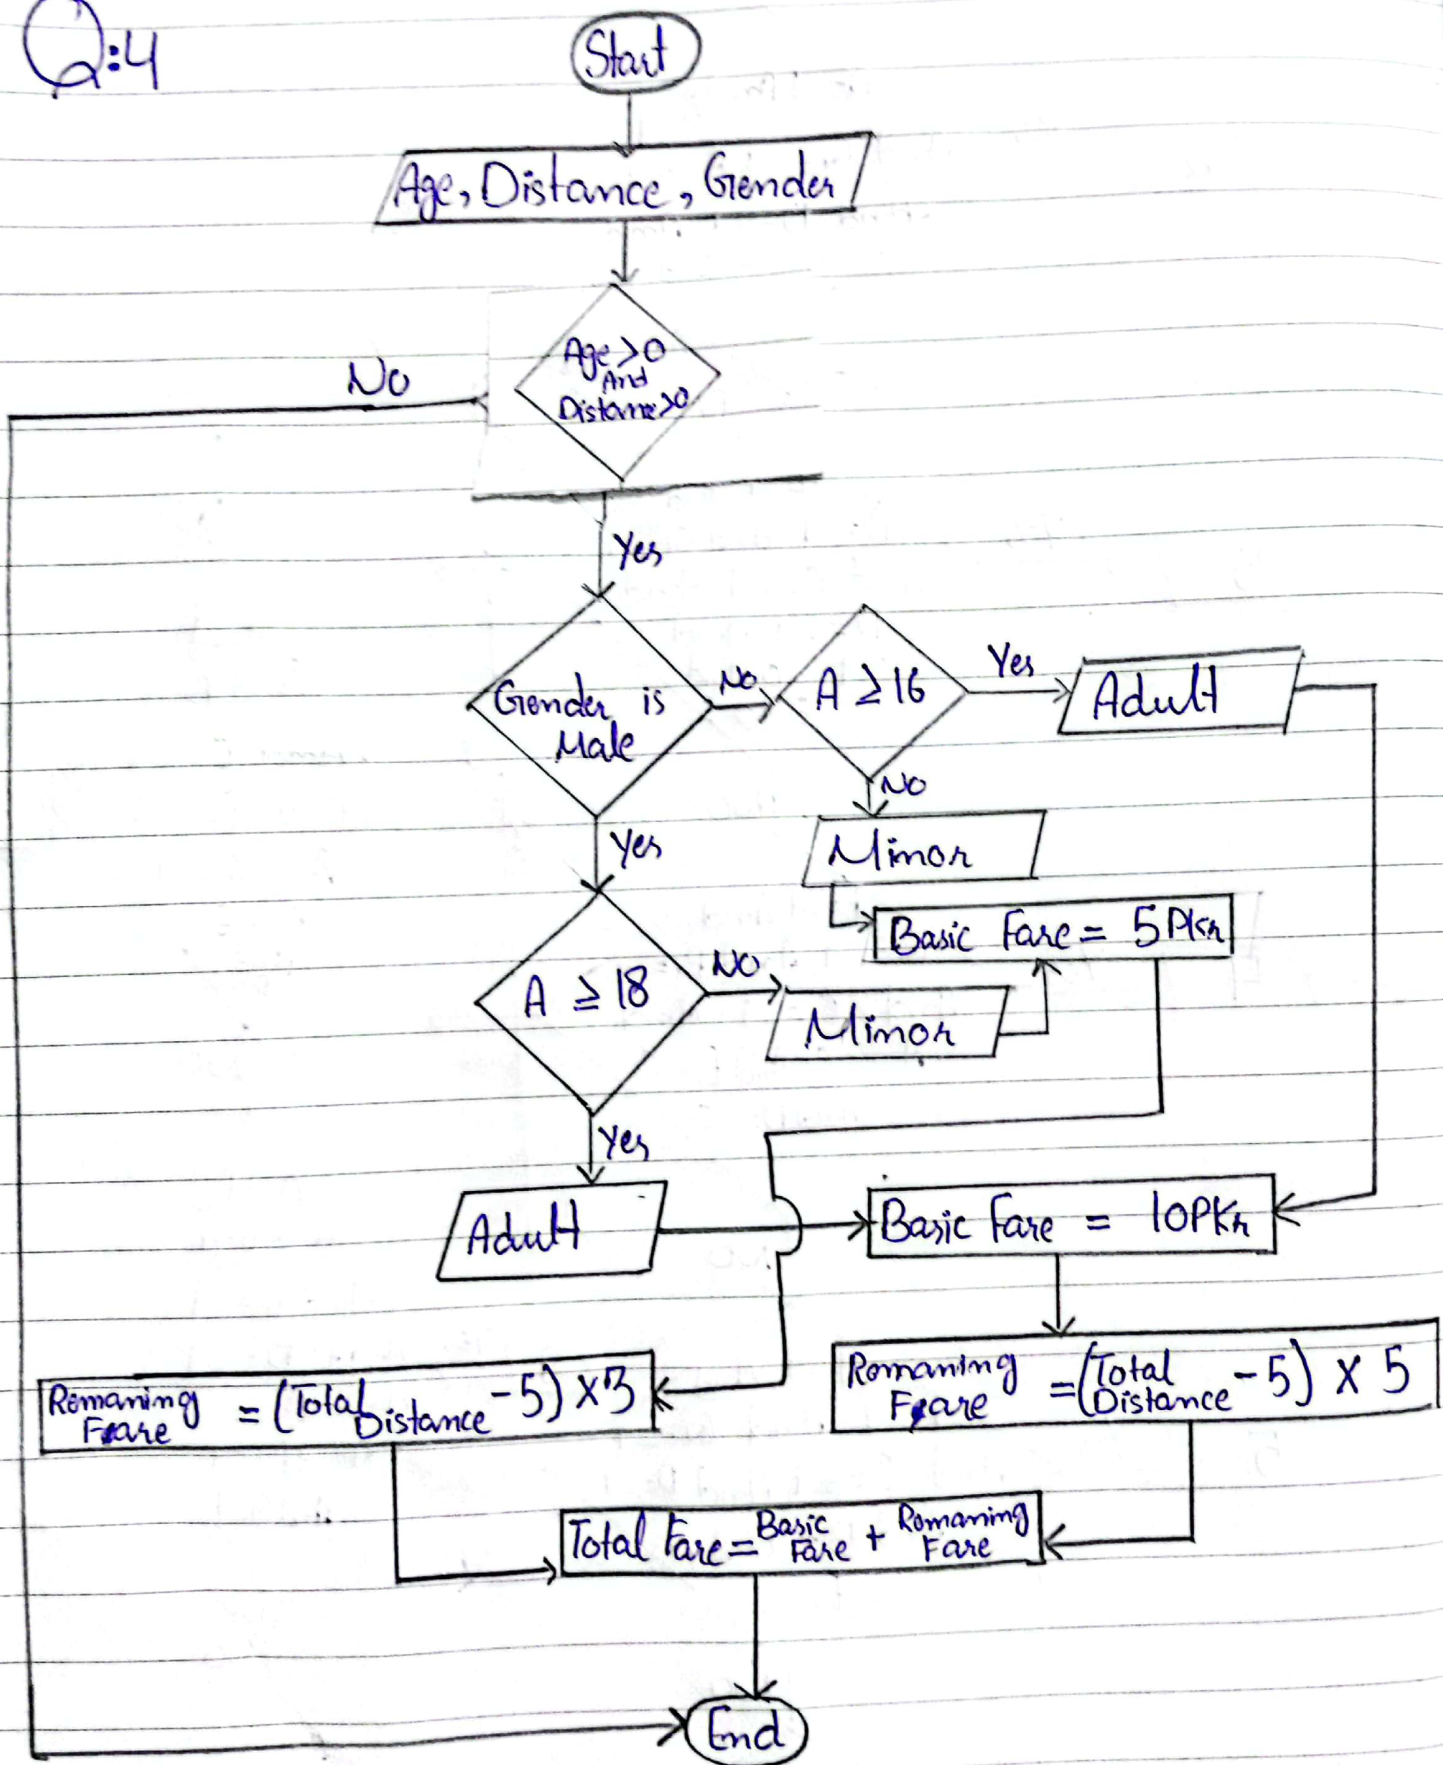 Q:4
Start
Age, Distance, Gender
Age>0
And
Distance>0
No
Yes
Gender is
Male
No
A ≥ 16
Yes
Adult
No
Minor
Yes
Basic Fare = 5 Pkr
A ≥ 18
No
Minor
Yes
Adult
Basic Fare = 10 Pkr
Remaning
Fare = (Total
Distance - 5) × 3
Remaning
Fare = (Total
Distance - 5) × 5
Total Fare = Basic
Fare + Remaning
Fare
End